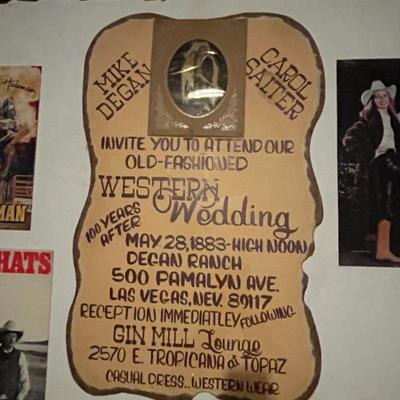 MIKE DEGAN
CAROL SALTER
INVITE YOU TO ATTEND OUR
OLD-FASHIONED
WESTERN
Wedding
100 YEARS
AFTER
MAY 28, 1883-HIGH NOON
DEGAN RANCH
500 PAMALYN AVE.
LAS VEGAS, NEV. 89117
RECEPTION IMMEDIATLEY FOLLOWING
GIN MILL Lounge
2570 E. TROPICANA at TOPAZ
CASUAL DRESS..WESTERN WEAR
MAN
HATS